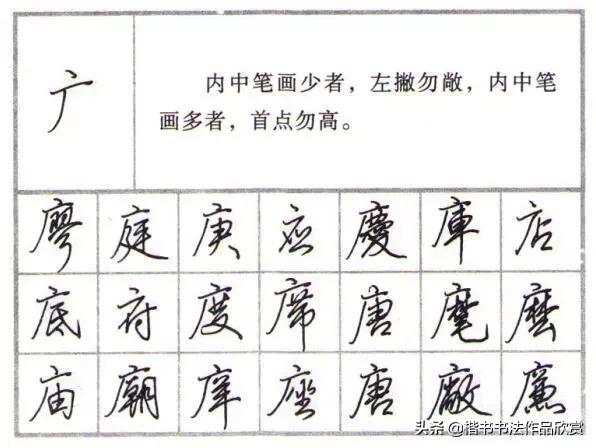 广
内中笔画少者，左撇勿敞，内中笔
画多者，首点勿高。
廖 庭 庚 应 慶 庫 店
底 府 度 席 唐 麾 麽
庙 廟 庠 座 唐 廠 廉
头条 @楷书书法作品欣赏